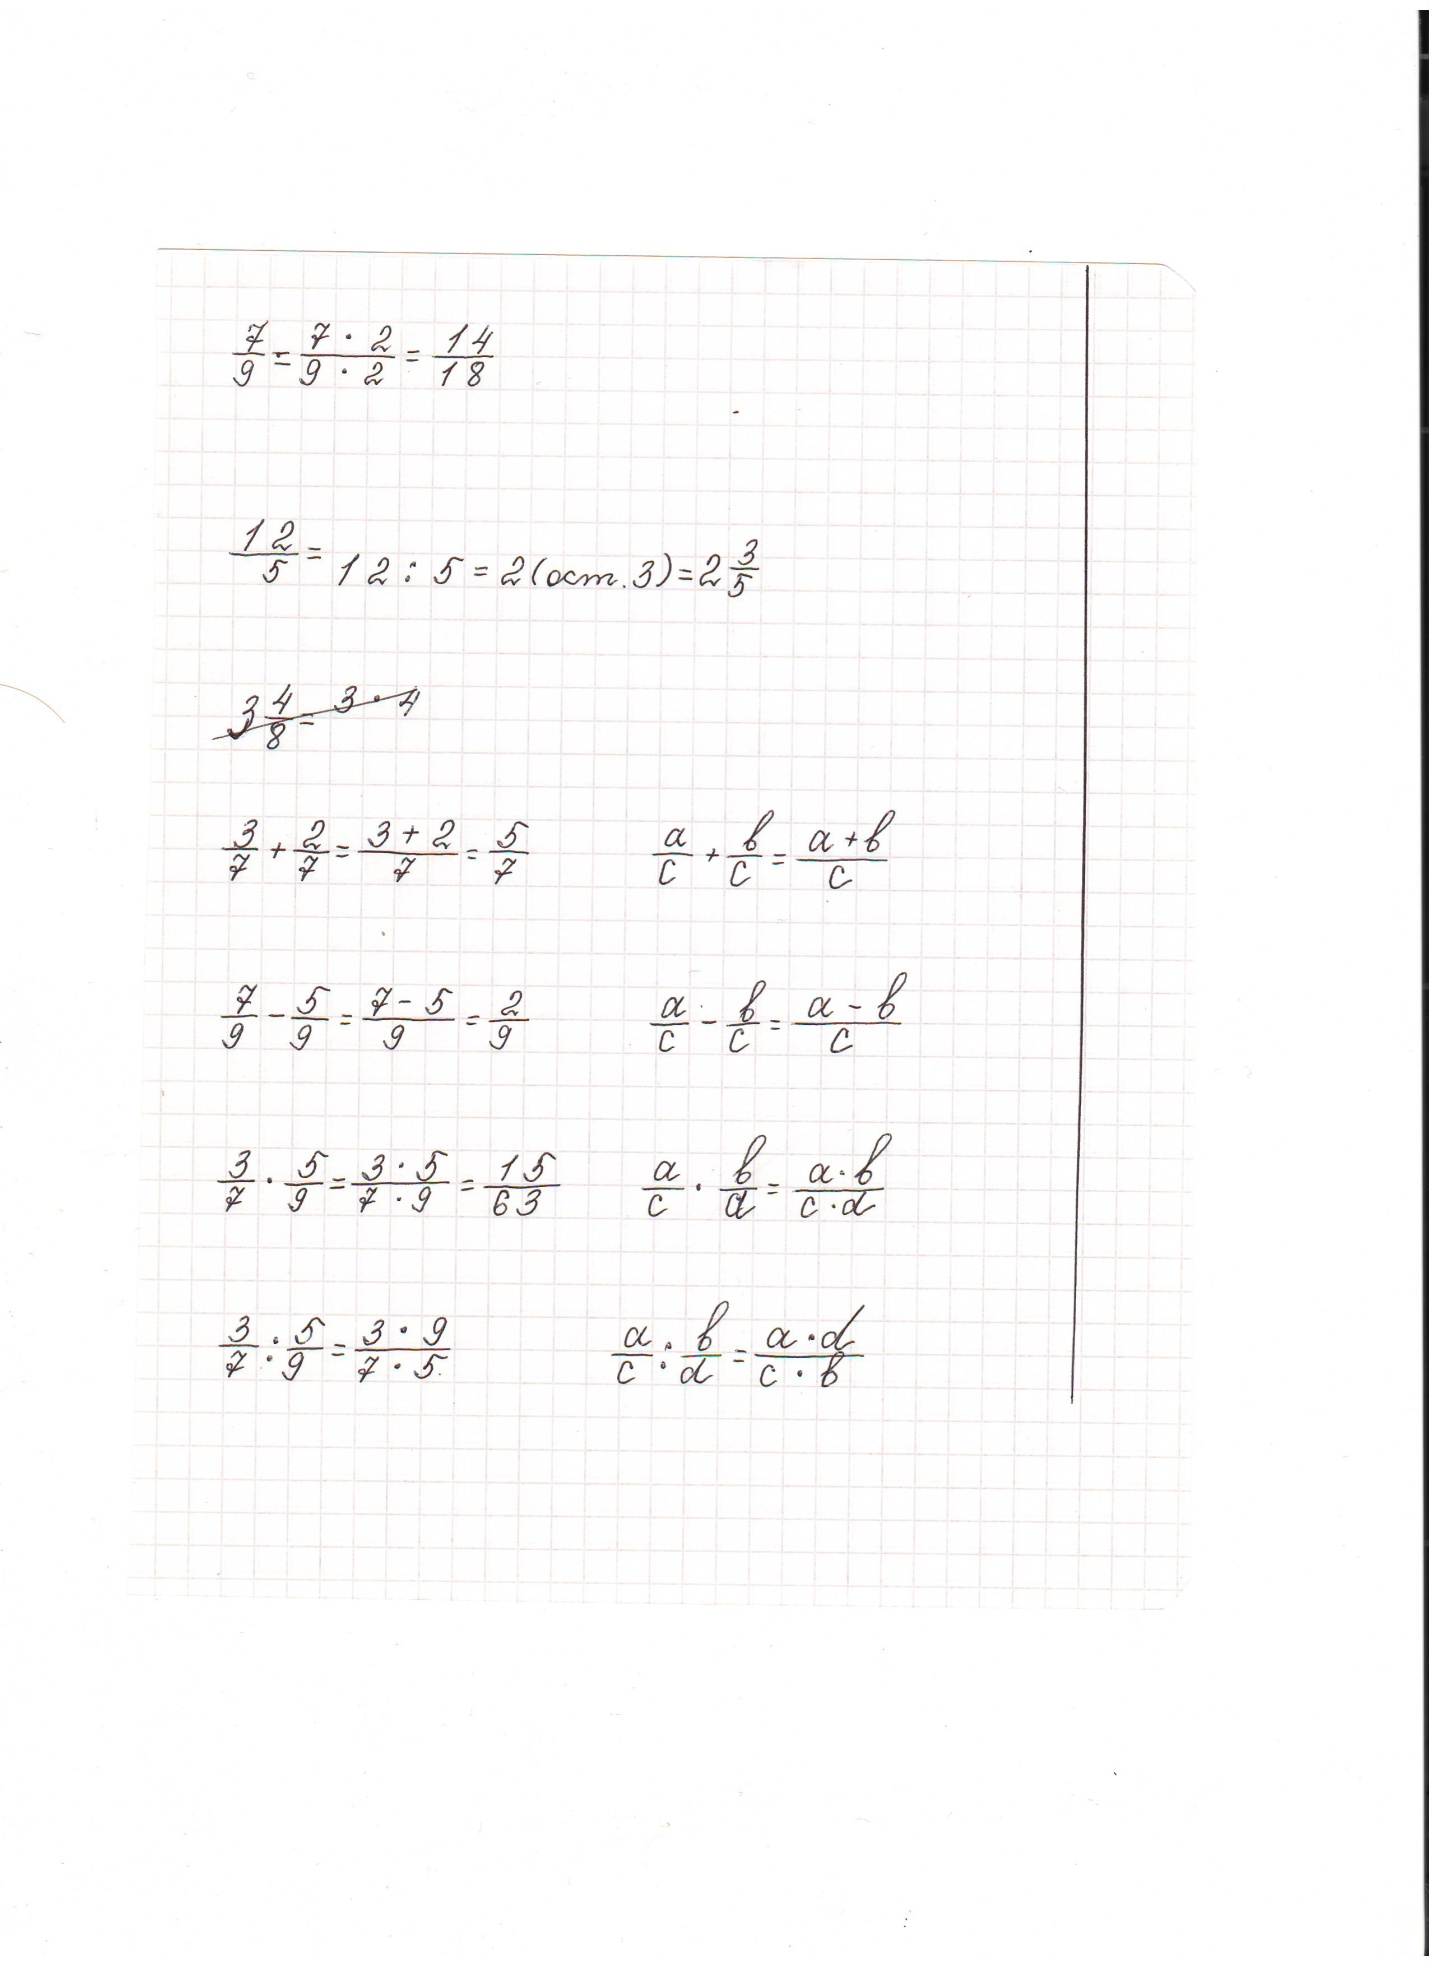 7/9 = (7 · 2)/(9 · 2) = 14/18
12/5 = 12 : 5 = 2 (ост. 3) = 2 3/5
3 4/8 = 3 · 4
3/7 + 2/7 = (3 + 2)/7 = 5/7    a/c + b/c = (a + b)/c
7/9 - 5/9 = (7 - 5)/9 = 2/9    a/c - b/c = (a - b)/c
3/7 · 5/9 = (3 · 5)/(7 · 9) = 15/63    a/c · b/d = (a · b)/(c · d)
3/7 : 5/9 = (3 · 9)/(7 · 5)    a/c : b/d = (a · d)/(c · b)